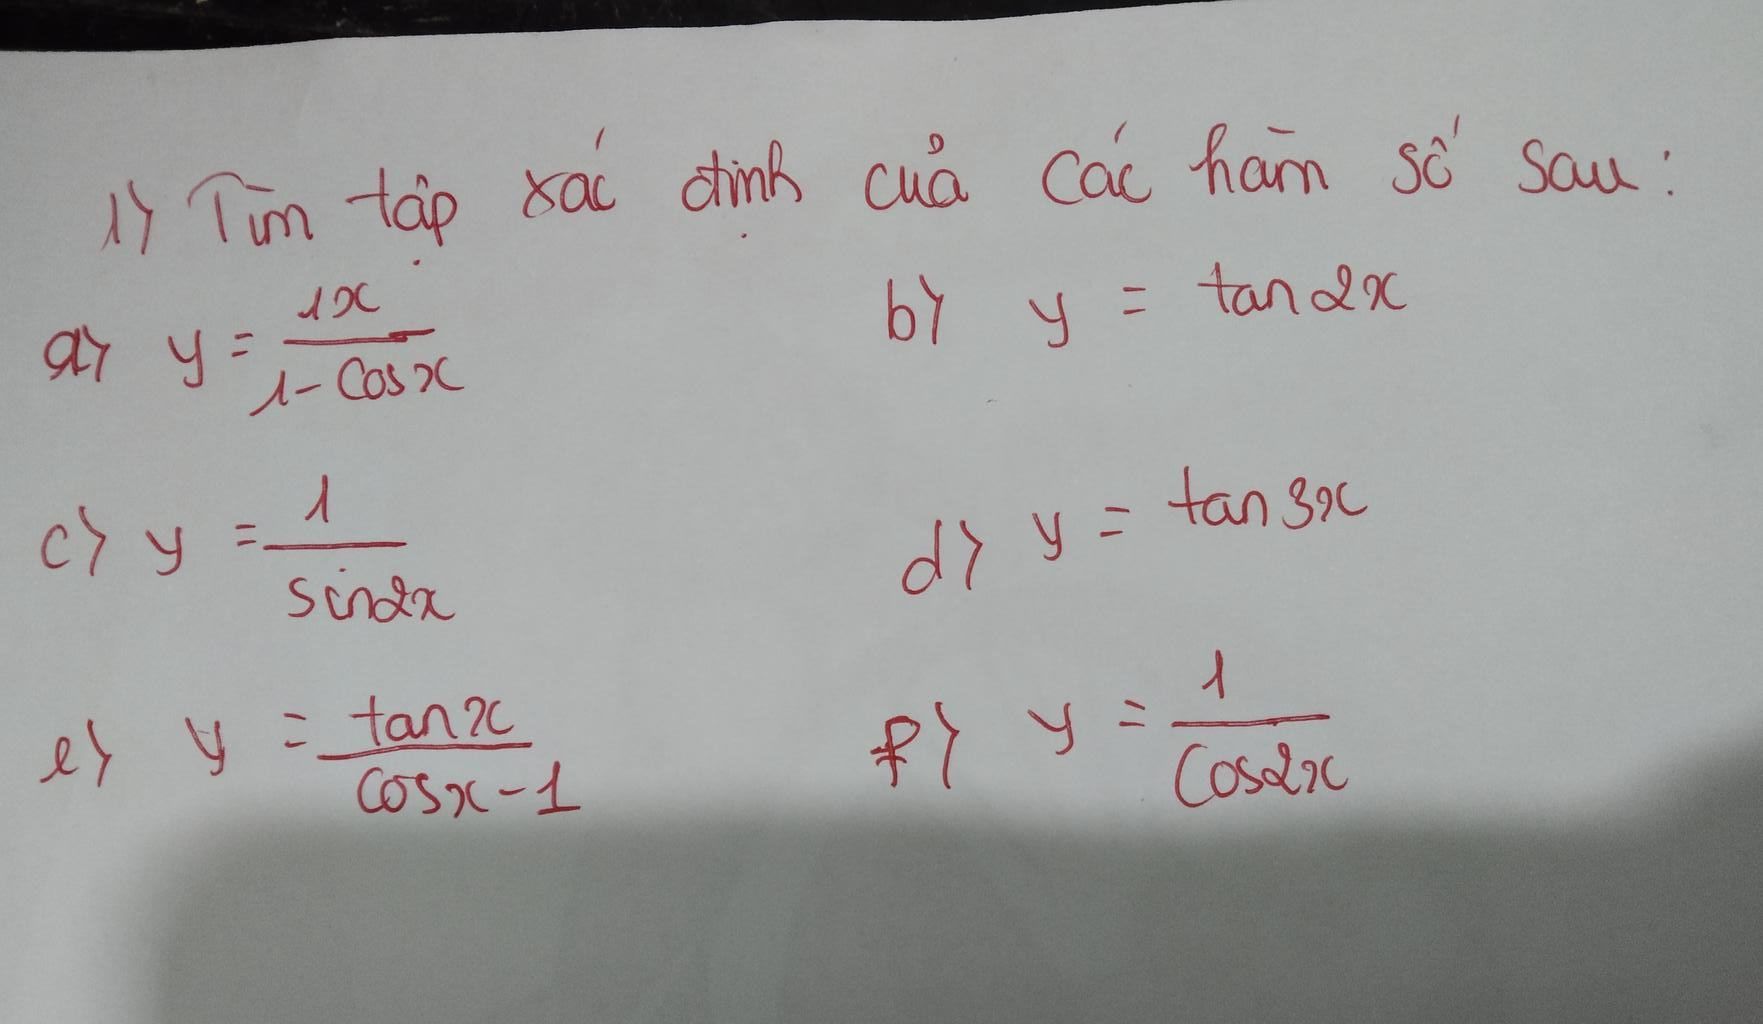 1) Tìm tập xác định của các hàm số sau:
a) y = 1x / 1 - cosx
b) y = tan2x
c) y = 1 / sin2x
d) y = tan3x
e) y = tanx / cosx - 1
f) y = 1 / cos2x